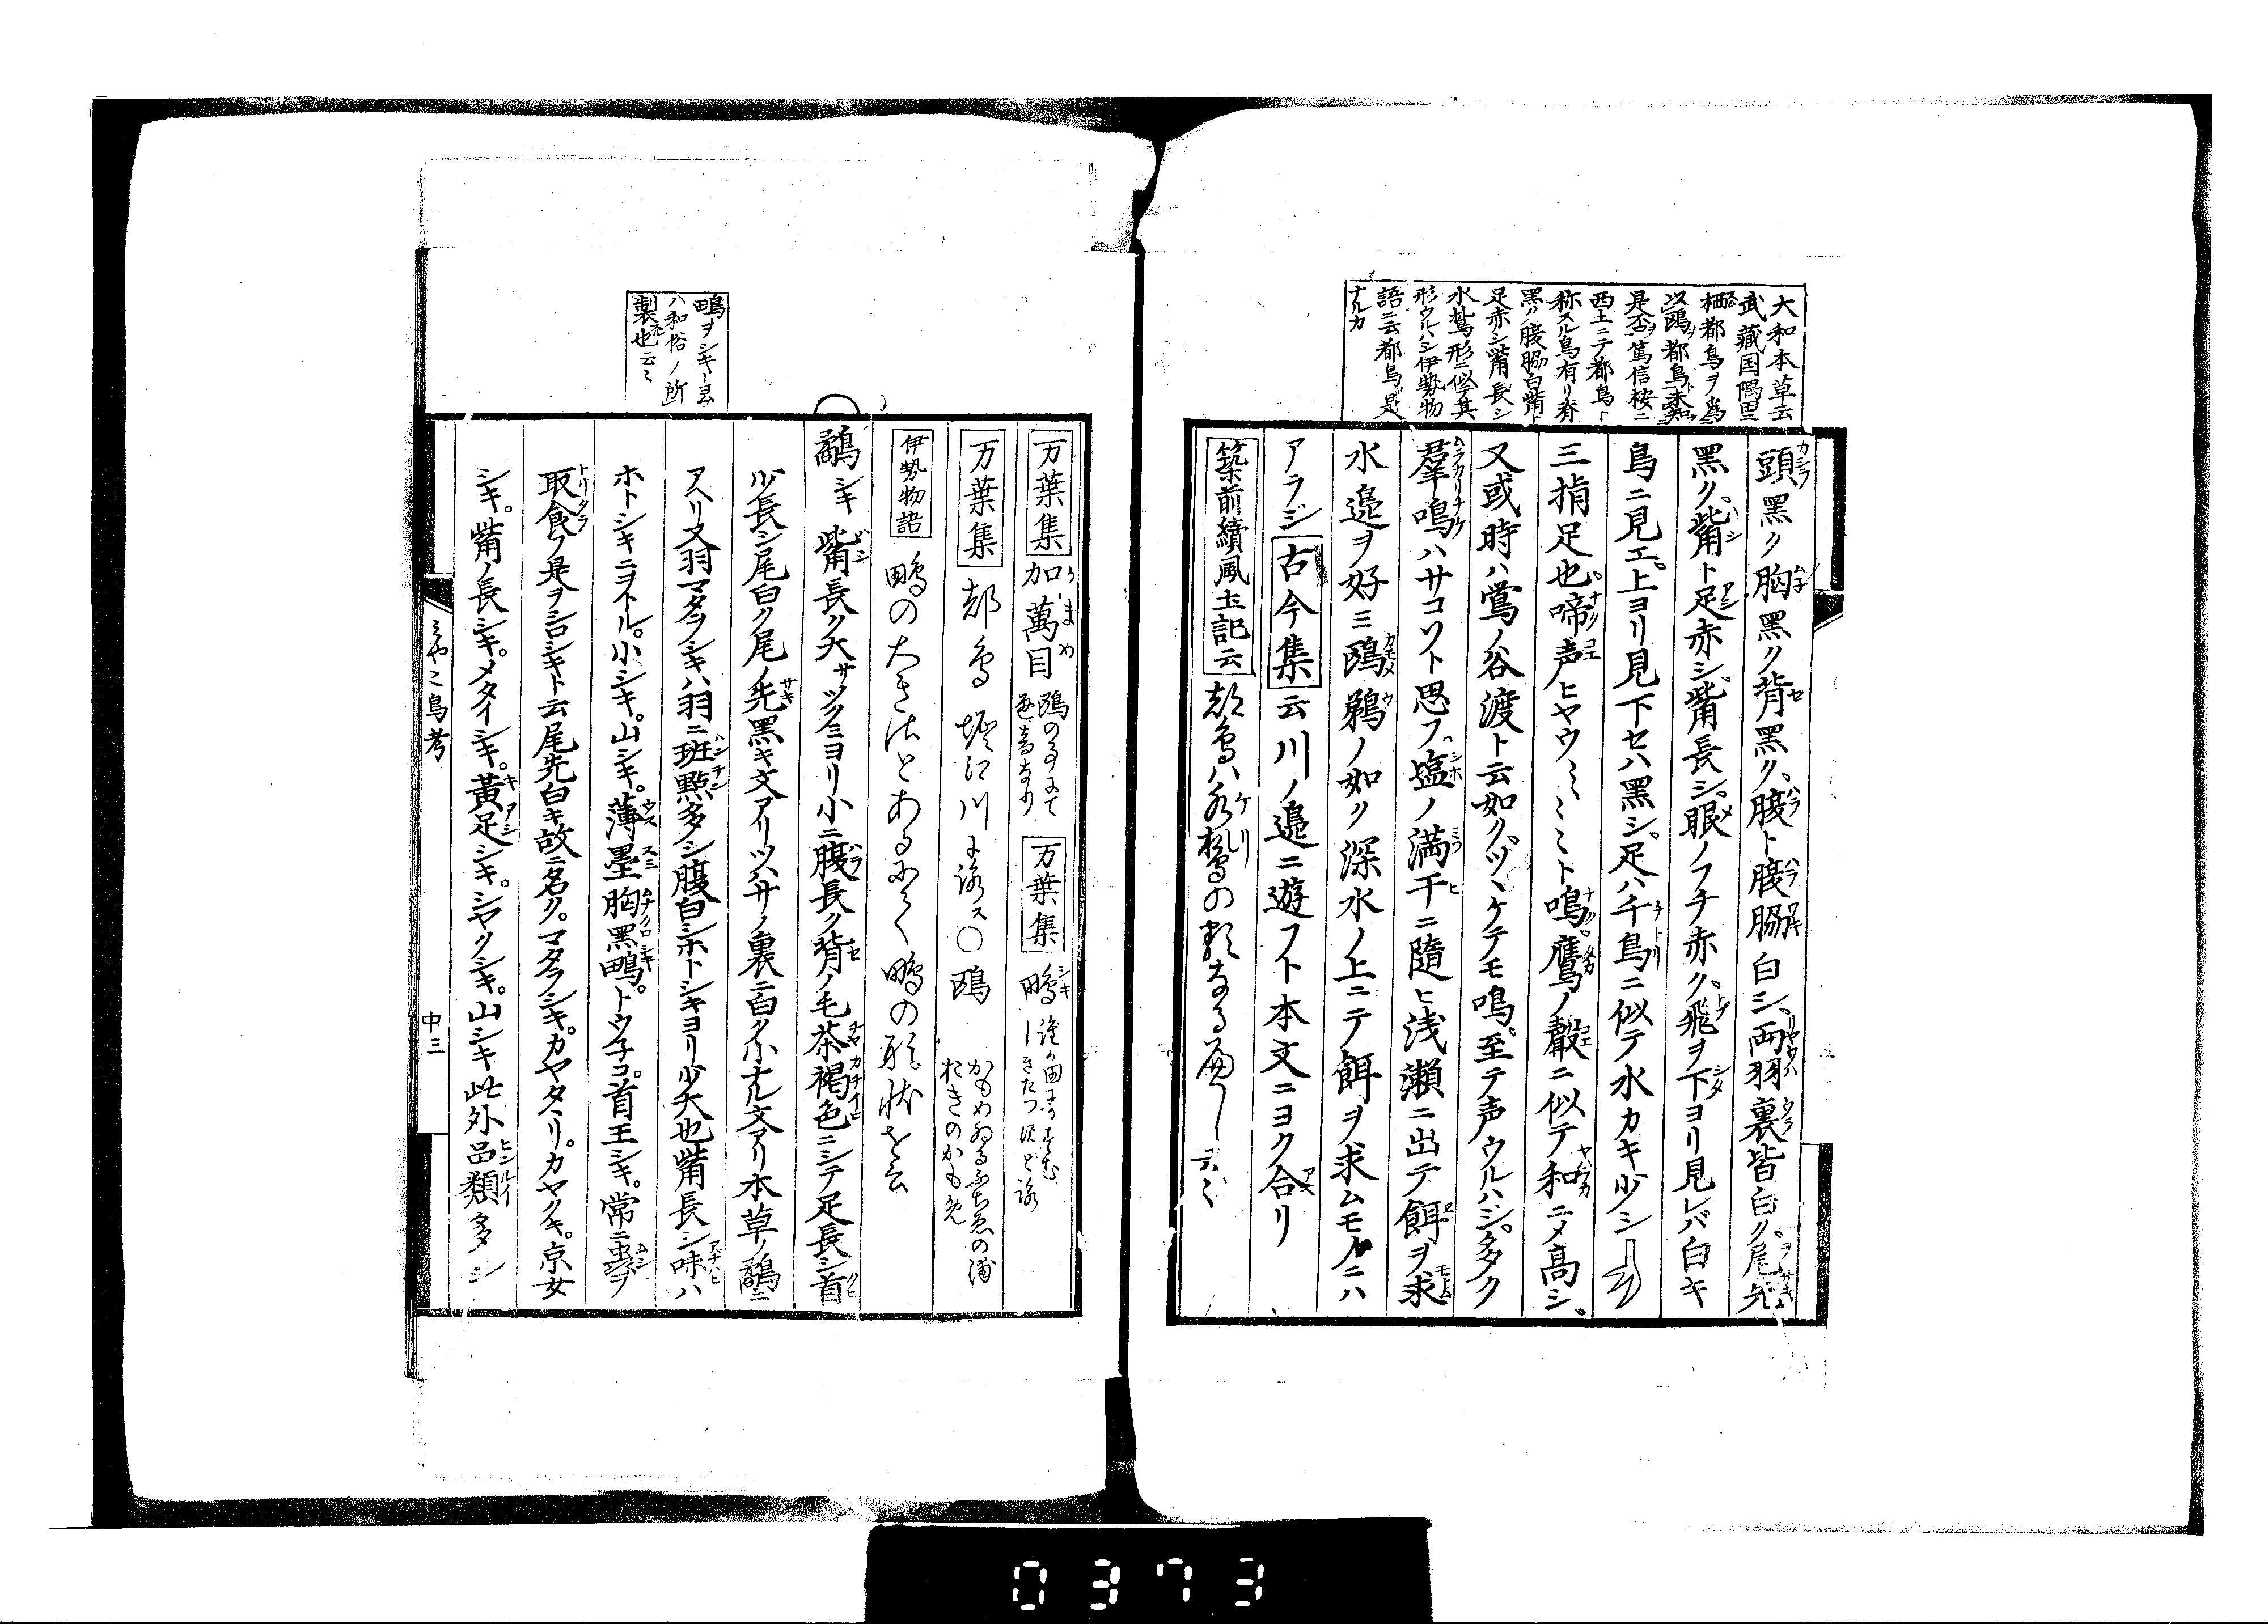 大和本草云
武藏国隅田ニ
栖都鳥ヲ爲
以鷗都鳥未知
是否篤信桉ニ
西土ニテ都鳥ト
称スル鳥有リ脊
黑ク腹脇白觜ト
足赤シ觜長シ
水鷙形ニ似テ其
形ウルハシ伊勢物
語ニ云都鳥是
ナルカ
頭黑ク胸黑ク背黑ク、腹ト腹脇白シ、両羽裏皆白ク。尾先
黑ク。觜ト足赤シ觜長シ。眼ノフチ赤ク、飛ヲ下ヨリ見レバ白キ
鳥ニ見エ。上ヨリ見下セハ黑シ。足ハ千鳥ニ似テ水カキ少シ
三指足也。啼声ヒヤウミミミト鳴。鷹ノ聲ニ似テ和ニメ高シ。
又或時ハ鴬ノ谷渡ト云如ク。ツヽケテモ鳴。至テ声ウルハシ。多ク
羣鳴ハサコソト思フ。塩ノ満干ニ隨ヒ浅瀬ニ出テ餌ヲ求
水邉ヲ好ミ鷗鵜ノ如ク深水ノ上ニテ餌ヲ求ムモノニハ
アラジ 古今集云川ノ邉ニ遊フト本文ニヨク合リ
築前續風土記云 都鳥ハ水鷙の類なるへし云〻
万葉集 加萬目 鷗のるにて
万葉集 鴫
万葉集 都鳥 堀江川に詠ス〇鷗 かもめゐるふぢえの浦
おきのかもめ
伊勢物語 鴫の大きさとあるハ鴫の形状を云
鴫ヲシキトヨム
ハ和俗ノ所
製也云〻
鷸シキ 觜長ク大サツグミヨリ小ニ腹長ク背ノ毛茶褐色ニシテ足長シ首
少長シ尾白ク尾ノ先黑キ文アリツハサノ裏ニ白ク小ナル文アリ本草ノ鷸ニ
アヘリ又羽マタラシキハ羽ニ斑點多シ腹白シホトシキヨリ少大也觜長シ味ハ
ホトシキニヲトル。小シキ。山シキ。薄墨胸黑鴫。トウ子コ。首玉シキ。常ニ虫ヲ
取食フ是ヲシロシキト云尾先白キ故ニ名ク。マタラシキ。カヤタヽリ。カヤクキ。京女
シキ。觜ノ長シキ。メタイシキ。黃足シキ。シヤクシキ。山シキ此外品類多シ
みやこ鳥考
中三
0373